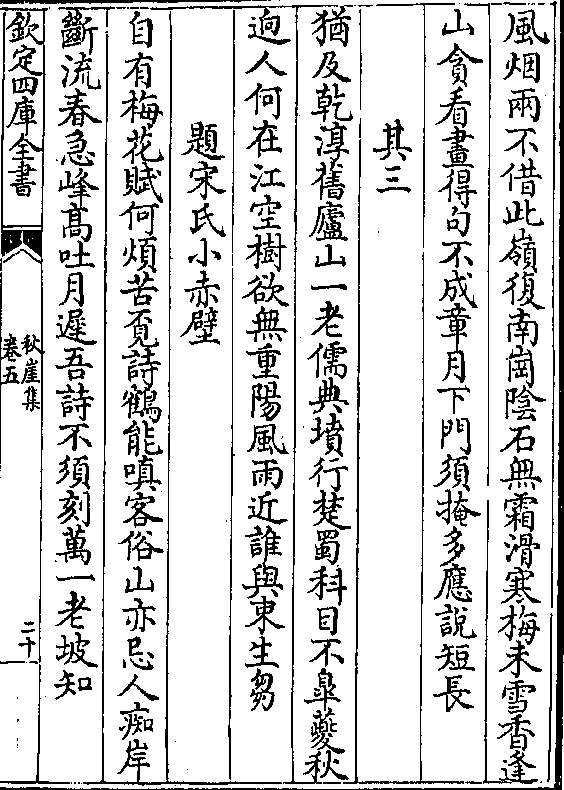 風烟雨不借此嶺復南崗陰石無霜滑寒梅未雪香逢
山貪看畫得句不成章月下門須掩多應說短長
其三
猶及乾淳舊廬山一老儒典墳行楚蜀科目不臯夔秋
逈人何在江空樹欲無重陽風雨近誰與東生芻
題宋氏小赤壁
自有梅花賦何煩苦覓詩鶴能嗔客俗山亦忌人痴岸
斷流春急峰髙吐月遲吾詩不須刻萬一老坡知
欽定四庫全書
秋崖集
卷五
二十